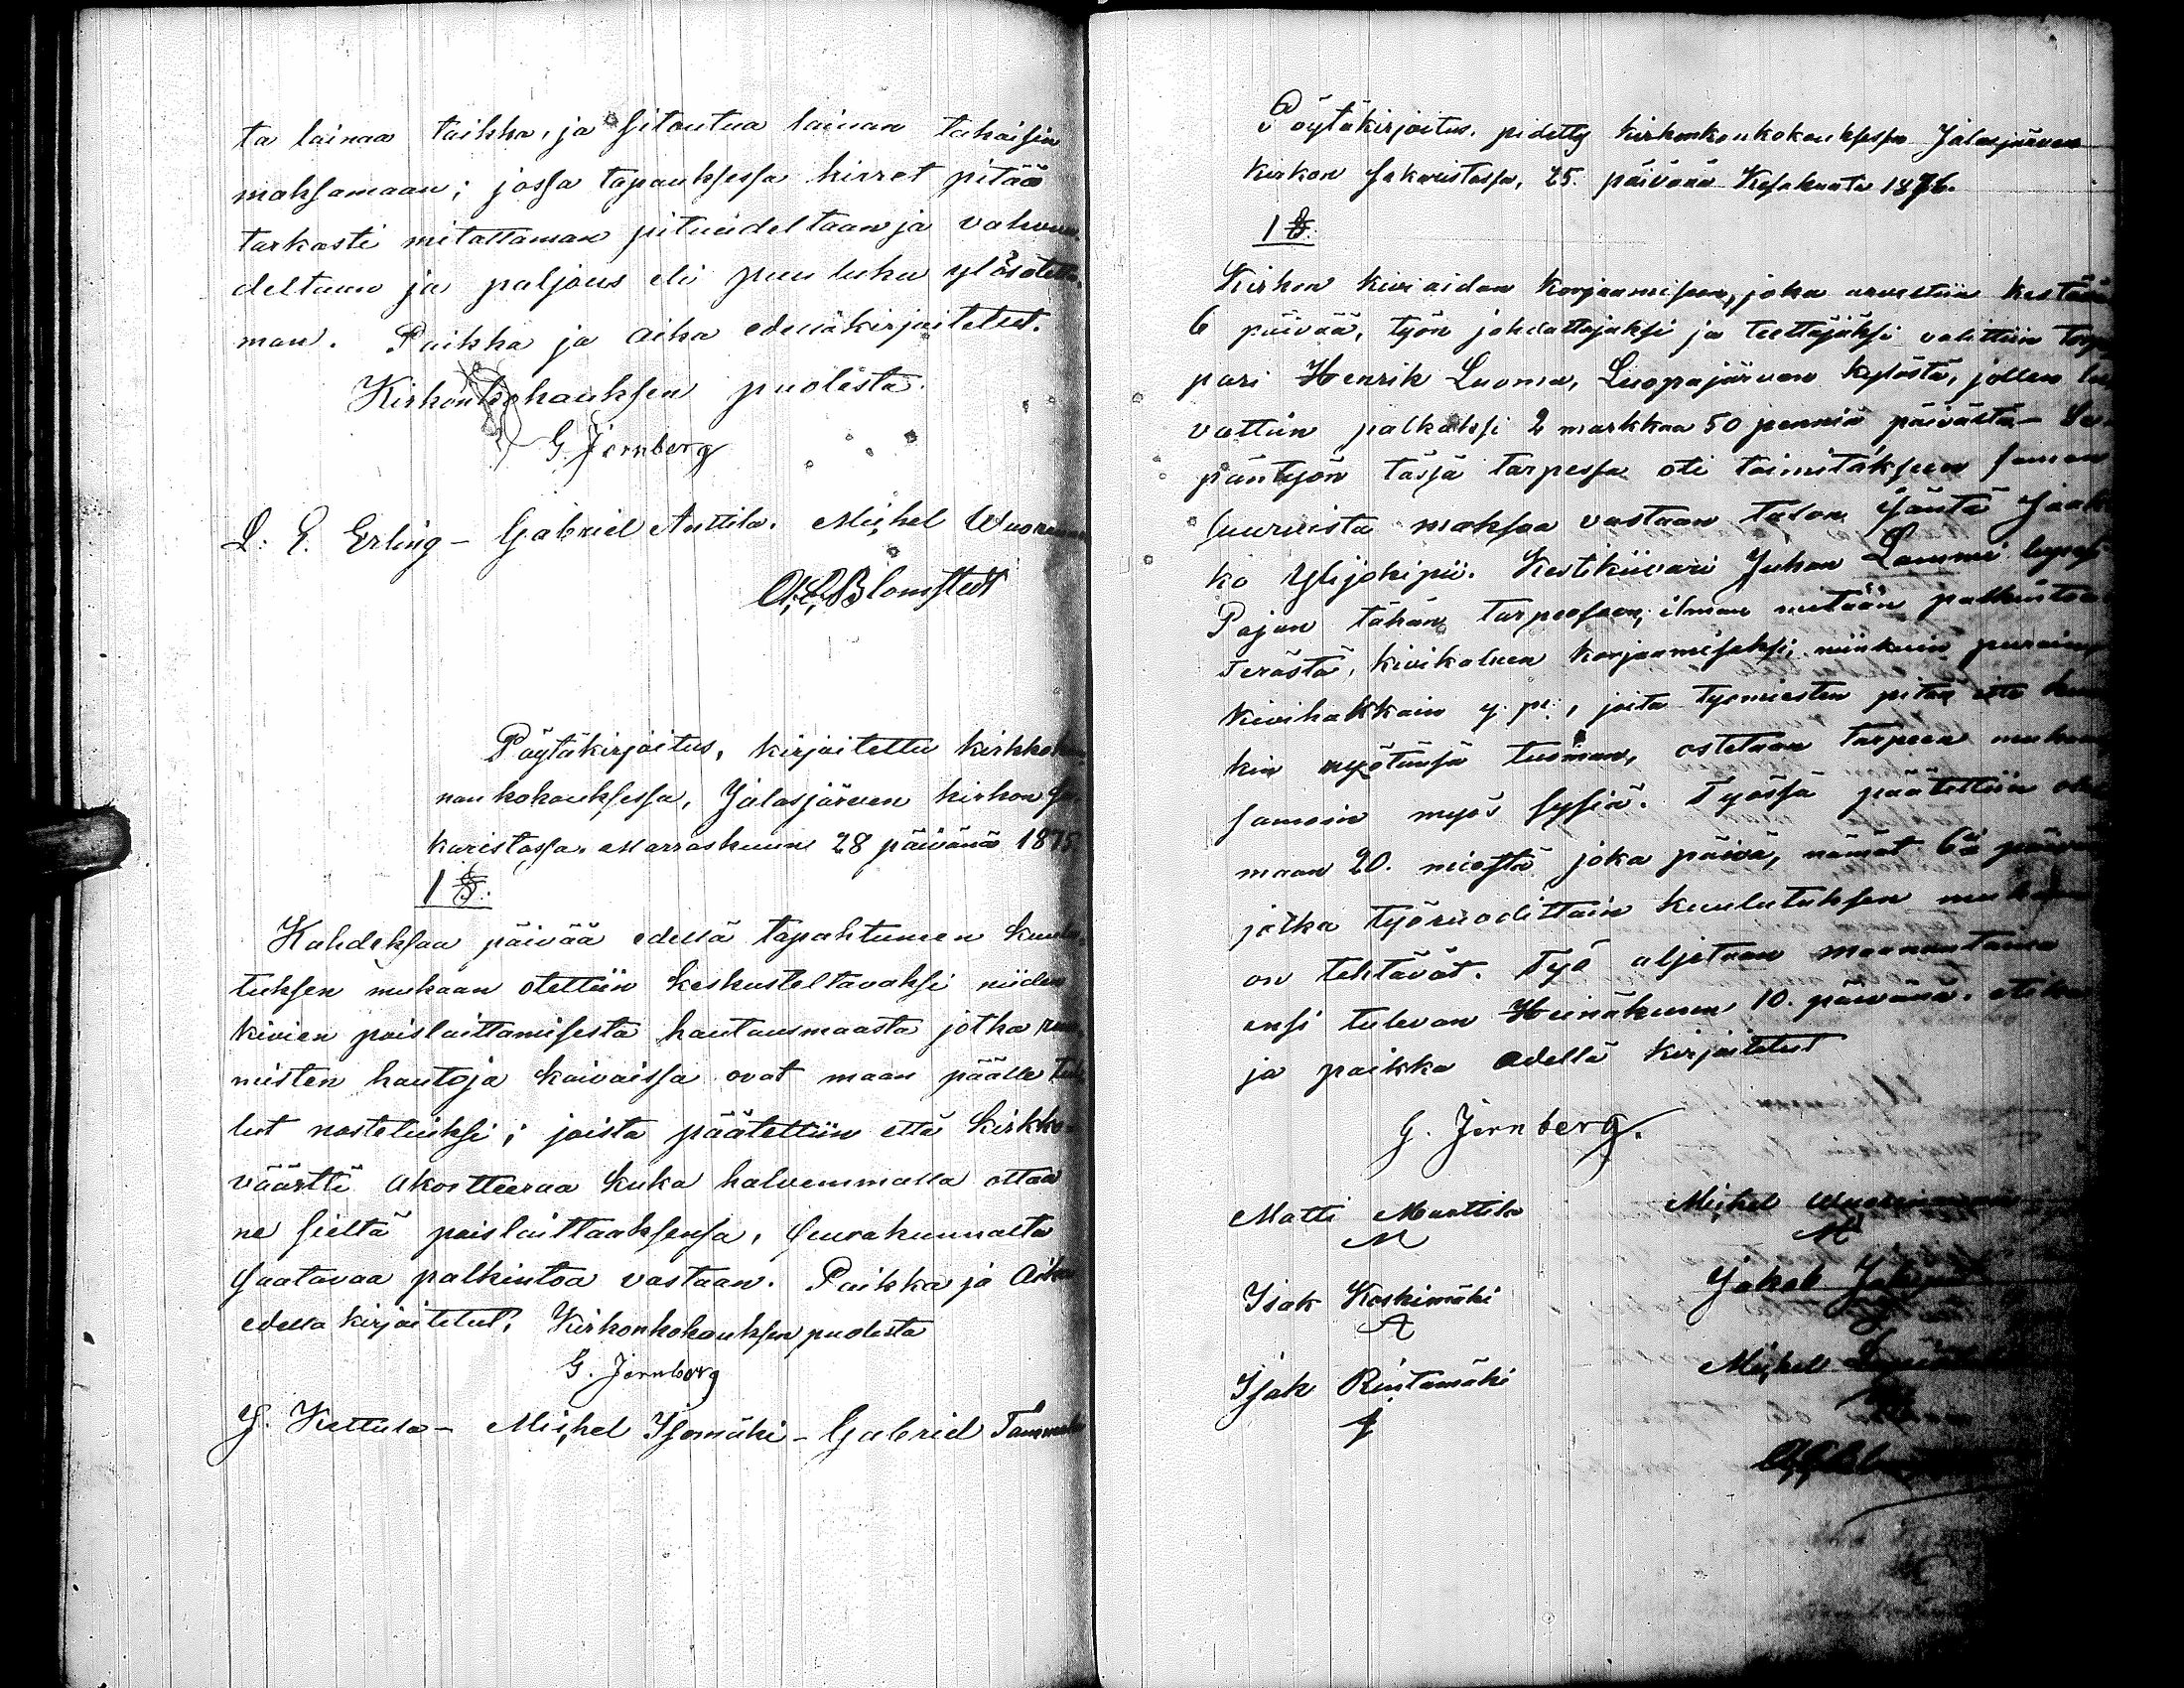 ta lainaa taikka, ja sitoutua lainan takaisin
maksamaan; jossa tapauksessa hirret pitää
tarkasti mitattaman pituudeltaan ja
deltaan ja paljous eli puu luku
man. Paikka ja aika edelläkirjoitetut.
Kirkonkokouksen puolesta.
G. Jernberg
L. E. Erling – Gabriel Anttila. Michel
Blomstedt
Pöytäkirjoitus, kirjoitettu
nan kokouksessa, Jalasjärven kirkon
karistossa. Marraskuun 28 päivänä 1875
1 §:
Kahdeksaa päivää edellä tapahtuneen
tuksen mukaan otettiin keskusteltavaksi niiden
kivien poislaittamisesta hautausmaasta jotka
misten hautoja kaivaissa ovat maan päälle
lut nostetuiksi; joista päätettiin että Kirkko-
väärtti akortteeraa kuka halvemmalla ottaa
ne sieltä poislaittaaksensa, Seurakunnalta
saatavaa palkintoa vastaan. Paikka ja Aika
edellä kirjoitetut. Kirkonkokouksen puolesta
G. Jernberg
Kuttula – Michel Isomäki – Gabriel
Pöytäkirjoitus, pidetty kirkonkonkokouksessa Jalasjärven
kirkon sakaristossa, 25. päivänä Kesäkuuta 1876.
1 §:
Kirkon kivi aidan korjaamiseen, joka arveltiin
6 päivää, työn johdattajaksi ja teettäjäksi valittiin
pari Henrik Luoma, Luopajärven kylästä, jollen
vattiin palkaksi 2 markkaa 50 penniä päivältä –
päntyön tässä tarpessa oti toimitaksen saman
suuruista maksoa vastaan talon isäntä Jaak
ko Ylijokipii. Kestikiivari Juhan Lammi lupasi
Pajan tähän tarpeeseen, ilman mitään
Terästä, kivikalun korjaamiseksi, niinkuin
kivihakkain y. p., joita Tyomiesten pitää
kin myötänsä tuoman, ostetaan tarpeen
samoin myös sysiä. Työssä päätettiin
maan 20. miestä joka päivä, nämät
jotka työruodittain kuulutuksen
on tehtävät. Työ aljetaan maanantaina
ensi tulevan Heinäkuun 10. päivänä.
ja paikka edellä kirjoitetut
G. Jernberg.
Matti Marttila
Michel
Isak Koskimäki
Jakob
Isak Rintamäki
Michel